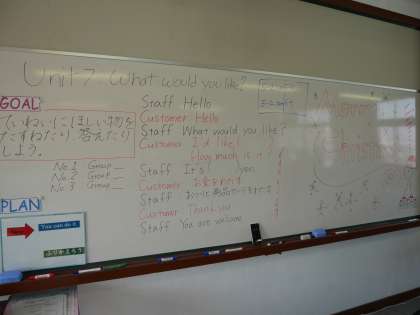 Unit 7 What would you like?
GOAL
ていねいにほしい物を
たずねたり、答えたり
しよう。
No. 1 Group
No. 2 Group
No. 3 Group
PLAN
You can do it
ふりかえろう
Staff Hello
Customer Hello
Staff What would you like?
Customer I'd like
How much is it?
Staff It's yen.
Customer お金をわたす
Staff
Customer Thank you
Staff You are welcome
Merry
Christmas